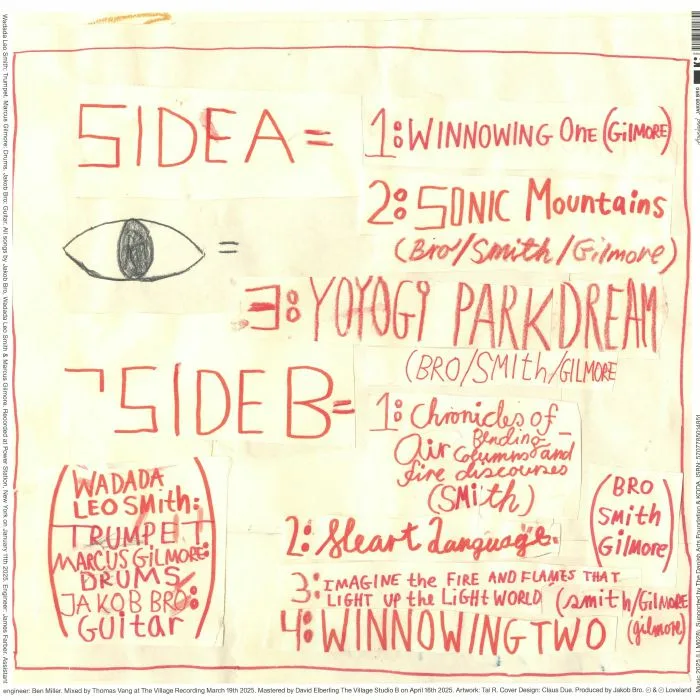 SIDE A =
1: WINNOWING One (GiLMORE)
2: SONIC Mountains
(Bro/Smith/Gilmore)
=
3: YOYOGi PARKDREAM
(BRO/SMITH/GILMORE
SIDE B =
1: Chronicles of
Air Bending
Columns and
fire discourses
(SMith)
2: Heart Language.
(BRO
Smith
Gilmore)
3: IMAGINE the FIRE AND FLAMES THAT
LIGHT UP the LiGHT WORLD (smith/GilMORE
4: WINNOWING TWO (gilmore)
(WADADA
LEO SMith:
TRUMPET
MARCUS GILMORE:
DRUMS
JAKOB BRO:
GUitar)
Wadada Leo Smith: Trumpet. Marcus Gilmore: Drums. Jakob Bro: Guitar. All songs by Jakob Bro, Wadada Leo Smith & Marcus Gilmore. Recorded at Power Station, New York on January 11th 2025. Engineer: James Farber. Assistant
engineer: Ben Miller. Mixed by Thomas Vang at The Village Recording March 19th 2025. Mastered by David Elberling The Village Studio B on April 16th 2025. Artwork: Tal R. Cover Design: Claus Due. Produced by Jakob Bro. Loveland
Supported by The Danish Arts Foundation & KODA. ISRN:
JAKOB BRO